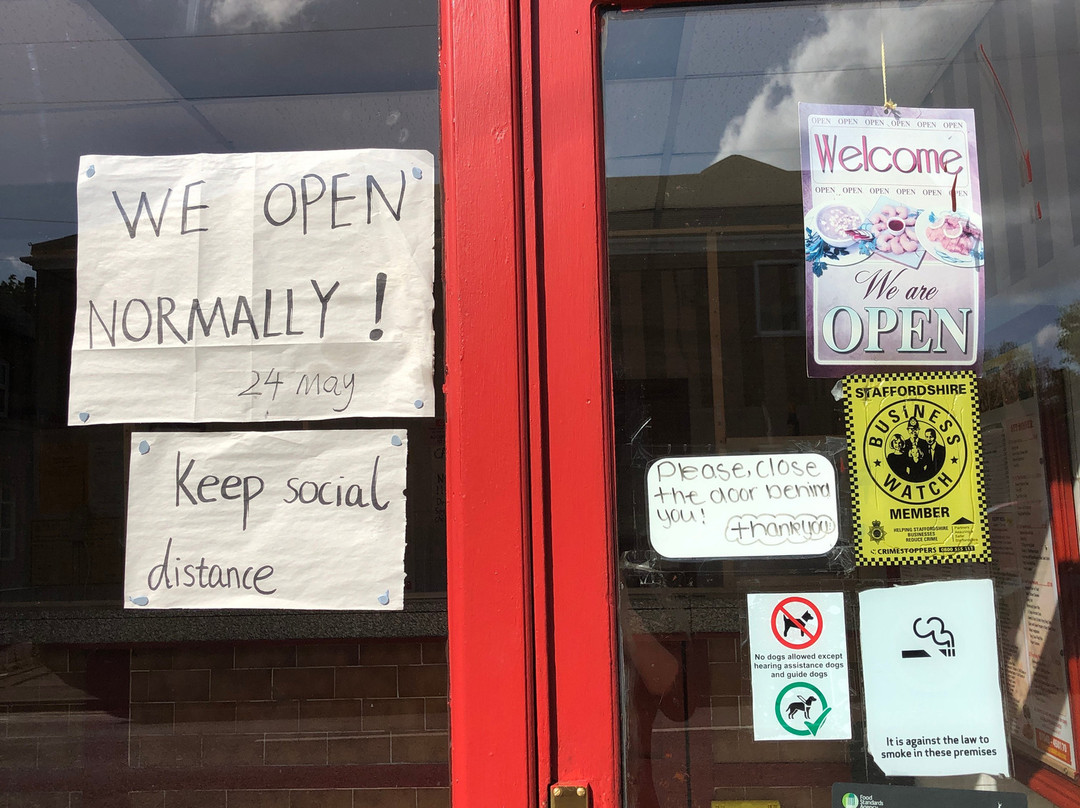 WE OPEN
NORMALLY!
24 May
Keep social
distance
OPEN OPEN OPEN OPEN OPEN OPEN
Welcome
OPEN OPEN OPEN OPEN OPEN OPEN
We are
OPEN
STAFFORDSHIRE
BUSiNESS
WATCH
MEMBER
HELPING STAFFORDSHIRE
BUSINESSES
REDUCE CRIME
CRIMESTOPPERS 0800 555 111
Please, close
the door behind
you!
thankyou
No dogs allowed except
hearing assistance dogs
and guide dogs
It is against the law to
smoke in these premises
Food
Standards
Agency